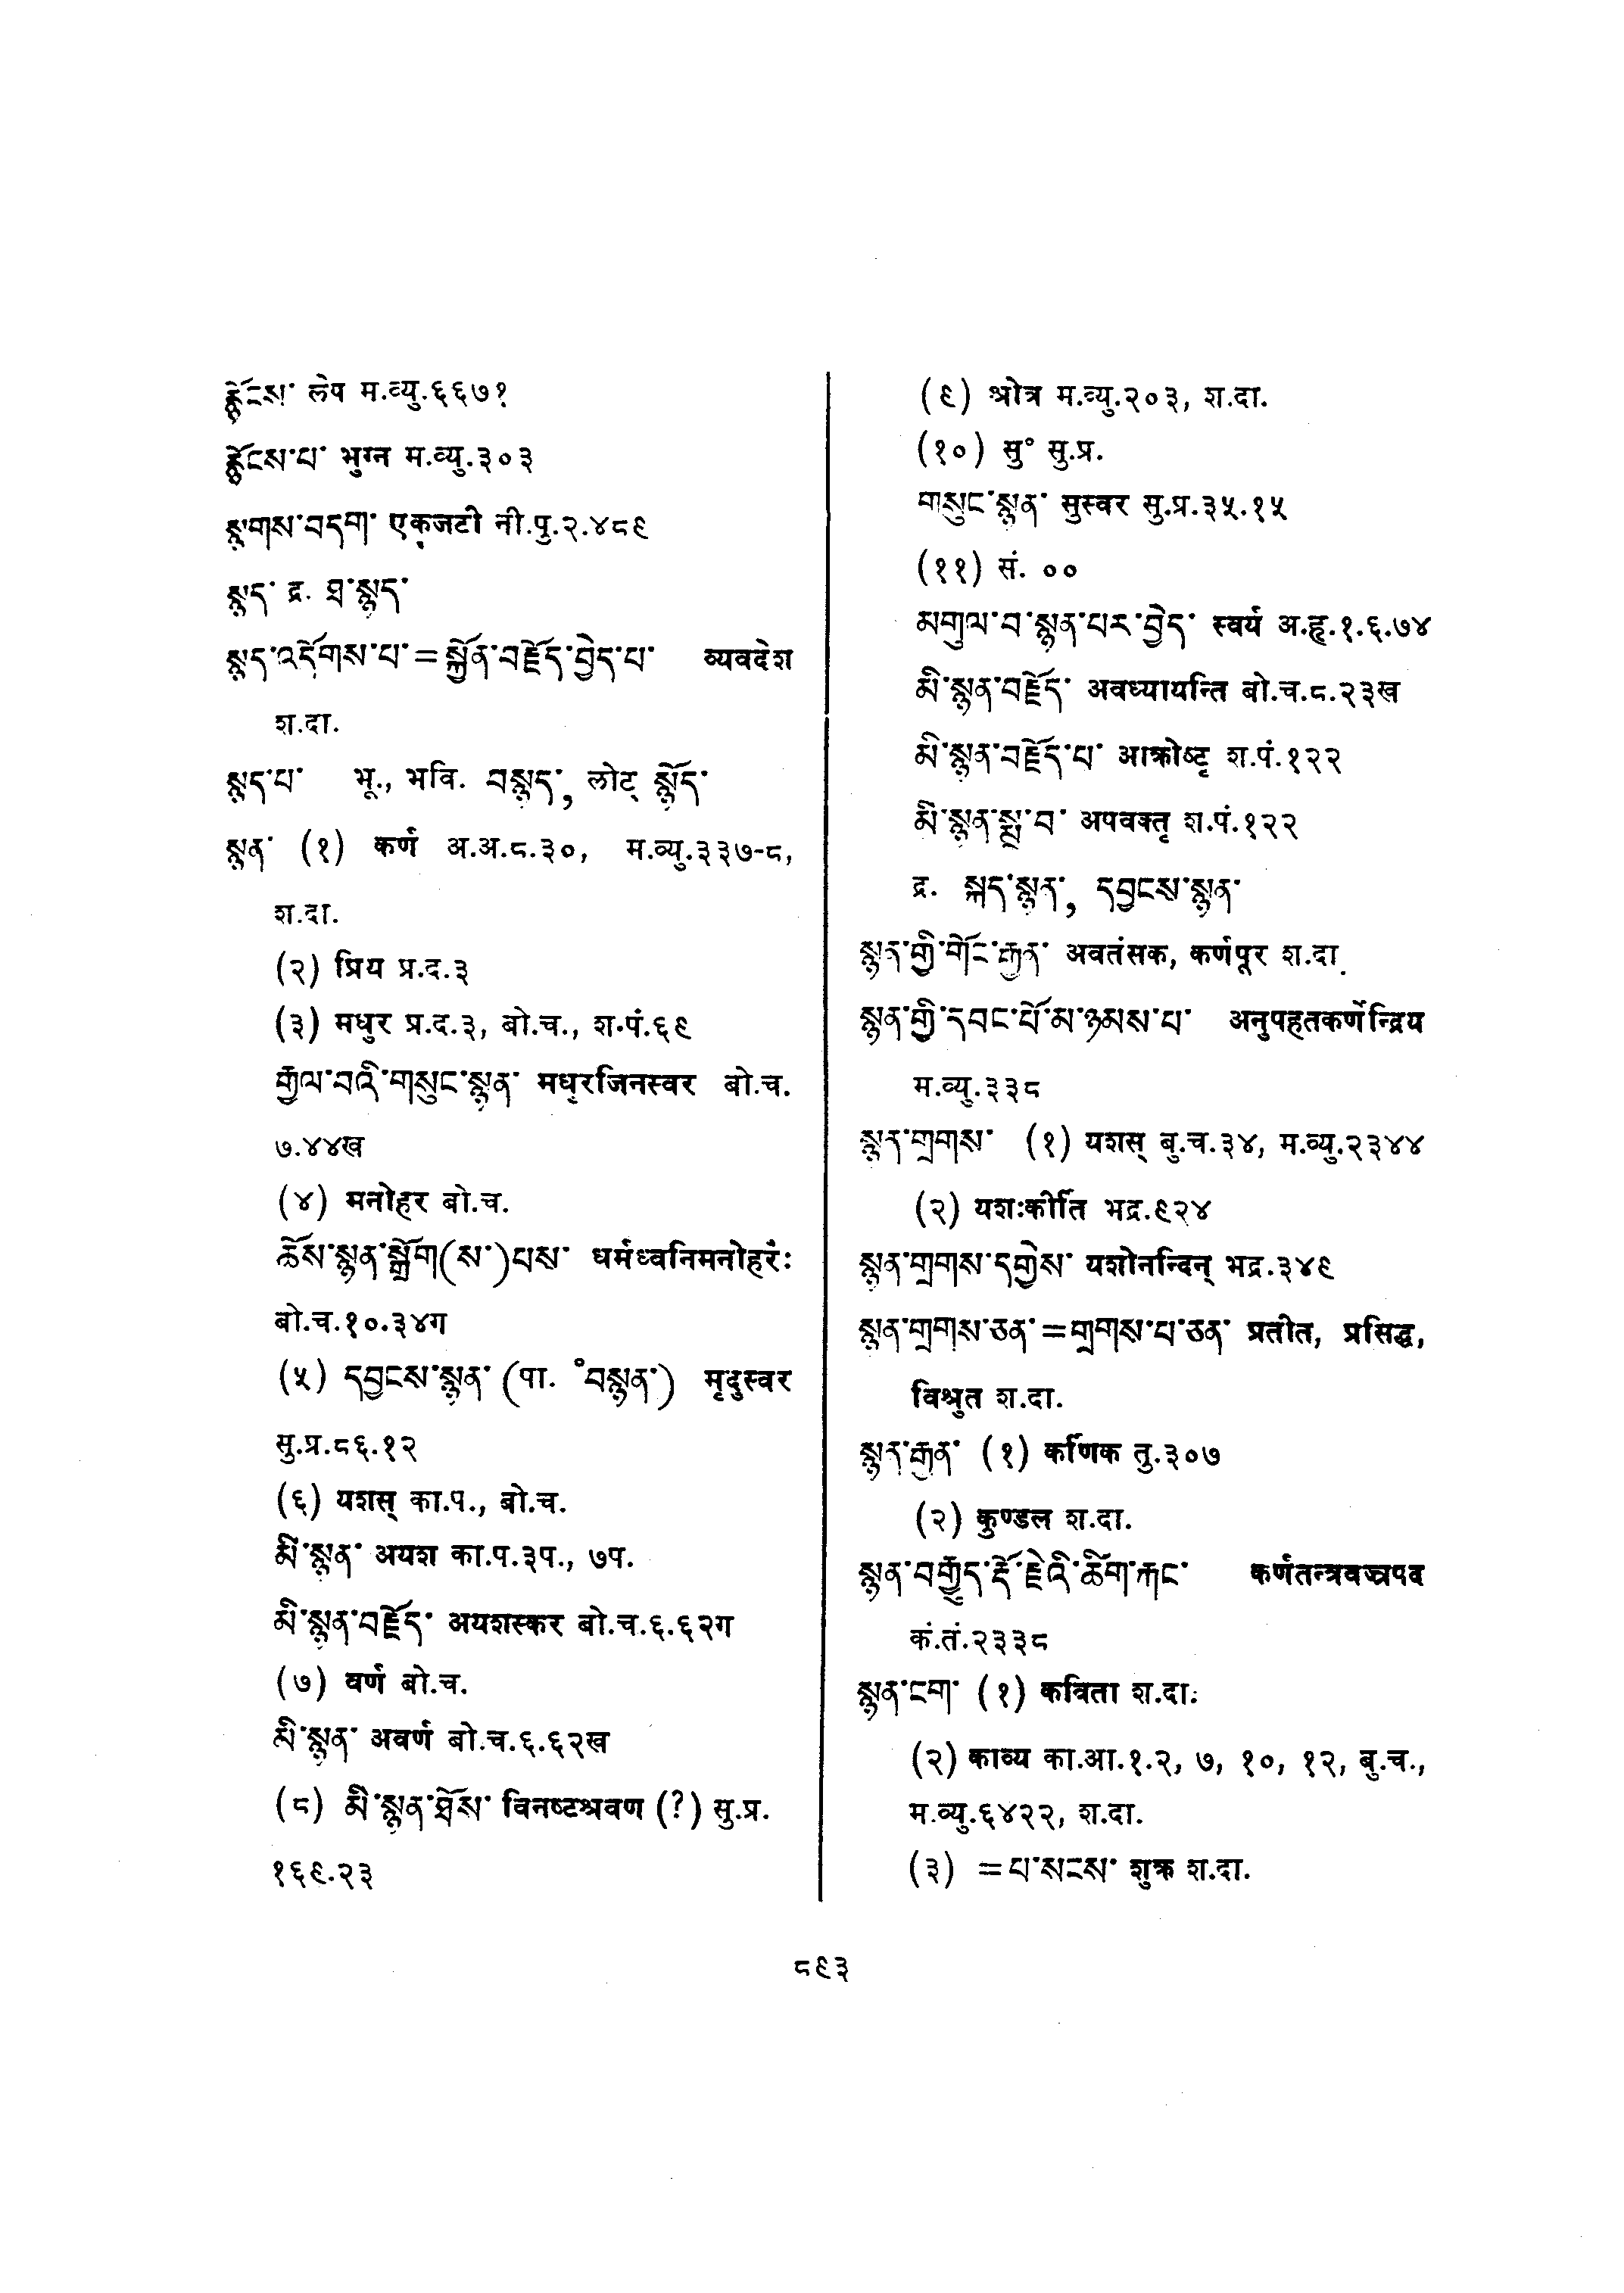 རྙོངས་ लेप म.व्यु.६६७१
རྙོངས་པ་ भुग्न म.व्यु.३०३
སྔགས་བདག་ एकजटी नी.पु.२.४८९
སྙད་ द्र. ཐ་སྙད་
སྙད་འདོགས་པ་=སྐྱོན་བརྗོད་བྱེད་པ་ व्यवदेश
श.दा.
སྙད་པ་ भू., भवि. བསྙད་, लोट् སྙོད་
སྙན་ (१) कर्ण अ.अ.८.३०, म.व्यु.३३७-८,
श.दा.
(२) प्रिय प्र.द.३
(३) मधुर प्र.द.३, बो.च., श.पं.६९
རྒྱལ་བའི་གསུང་སྙན་ मधुरजिनस्वर बो.च.
७.४४ख
(४) मनोहर बो.च.
ཆོས་སྙན་སྒྲོག(ས་)པས་ धर्मध्वनिमनोहरैः
बो.च.१०.३४ग
(५) དབྱངས་སྙན་ (पा. ॰བསྙན་) मृदुस्वर
सु.प्र.८६.१२
(६) यशस् का.प., बो.च.
མི་སྙན་ अयश का.प.३प., ७प.
མི་སྙན་བརྗོད་ अयशस्कर बो.च.६.६२ग
(७) वर्ण बो.च.
མི་སྙན་ अवर्ण बो.च.६.६२ख
(८) མི་སྙན་ཐོས་ विनष्टश्रवण (?) सु.प्र.
१६९.२३
(९) श्रोत्र म.व्यु.२०३, श.दा.
(१०) सु॰ सु.प्र.
གསུང་སྙན་ सुस्वर सु.प्र.३५.१५
(११) सं. ००
མགུལ་བ་སྙན་པར་བྱེད་ स्वर्य अ.हृ.१.६.७४
མི་སྙན་བརྗོད་ अवध्यायन्ति बो.च.८.२३ख
མི་སྙན་བརྗོད་པ་ आक्रोष्टृ श.पं.१२२
མི་སྙན་སྨྲ་བ་ अपवक्तृ श.पं.१२२
द्र. སྐད་སྙན་, དབྱངས་སྙན་
སྙན་གྱི་གོང་རྒྱན་ अवतंसक, कर्णपूर श.दा.
སྙན་གྱི་དབང་པོ་མ་ཉམས་པ་ अनुपहतकर्णेन्द्रिय
म.व्यु.३३८
སྙན་གྲགས་ (१) यशस् बु.च.३४, म.व्यु.२३४४
(२) यशःकीर्ति भद्र.९२४
སྙན་གྲགས་དགྱེས་ यशोनन्दिन् भद्र.३४९
སྙན་གྲགས་ཅན་=གྲགས་པ་ཅན་ प्रतीत, प्रसिद्ध,
विश्रुत श.दा.
སྙན་རྒྱན་ (१) कर्णिक तु.३०७
(२) कुण्डल श.दा.
སྙན་བརྒྱུད་རྡོ་རྗེའི་ཚིག་རྐང་ कर्णतन्त्रवज्रपद
कं.तं.२३३८
སྙན་ངག་ (१) कविता श.दा.
(२) काव्य का.आ.१.२, ७, १०, १२, बु.च.,
म.व्यु.६४२२, श.दा.
(३) =པ་སངས་ शुक्र श.दा.
८९३